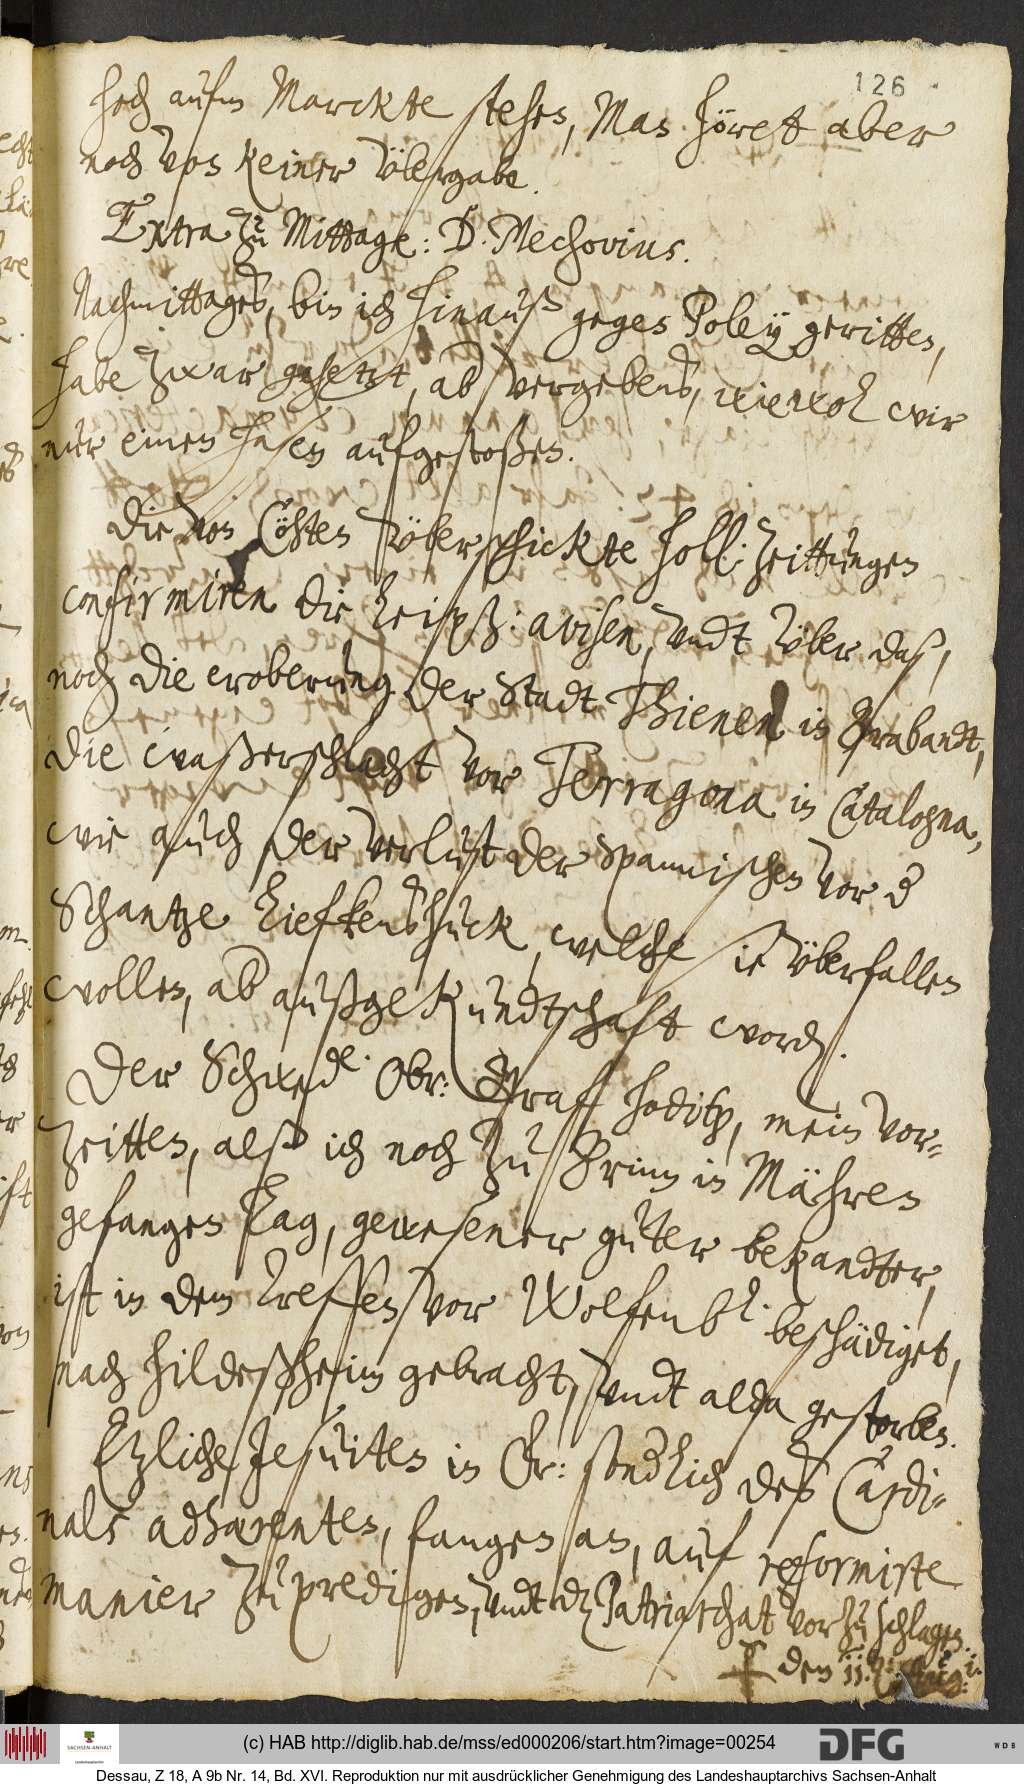 126
hoch aufm Marckte stehen, Man höret aber
noch von keiner übergabe.
Extra zu Mittage: D. Mechovius.
Nachmittages, bin ich hinauß gegen Poleÿ geritten,
habe zwar gehetzt, ab vergebens, wiewol wir
nur einen hasen aufgestoßen.
Die von Cöhten überschickte holl: zeittungen
confirmiren die Leipz: avisen, undt über das,
noch die eroberung der Stadt Thienen in Brabandt,
die waßerschlacht vor Terragona in Catalogna,
wie auch der verlust der Spannischen vor d
Schantze Liefkenshuck, welche sie überfallen
wollen, ab außgekundtschaft word.
Der Schwede. Obr: Graff Hoditz, mein vor-
zeitten, alß ich noch zu Brinn in Mähren
gefangen lag, gewesener guter bekandter,
ist in dem treffen vor Wolfenb: beschädiget,
nach Hildeßheim gebracht, undt alda gestorben.
Etzliche Jesuiten in Fr: sonderlich des Cardi-
nals adhærenten, fangen an, auf reformirte
manier zu predigen, undt dz Patriarchat vorzuschlagen.
den 11.
(c) HAB http://diglib.hab.de/mss/ed000206/start.htm?image=00254
SACHSEN-ANHALT
DFG
WDB
Dessau, Z 18, A 9b Nr. 14, Bd. XVI. Reproduktion nur mit ausdrücklicher Genehmigung des Landeshauptarchivs Sachsen-Anhalt